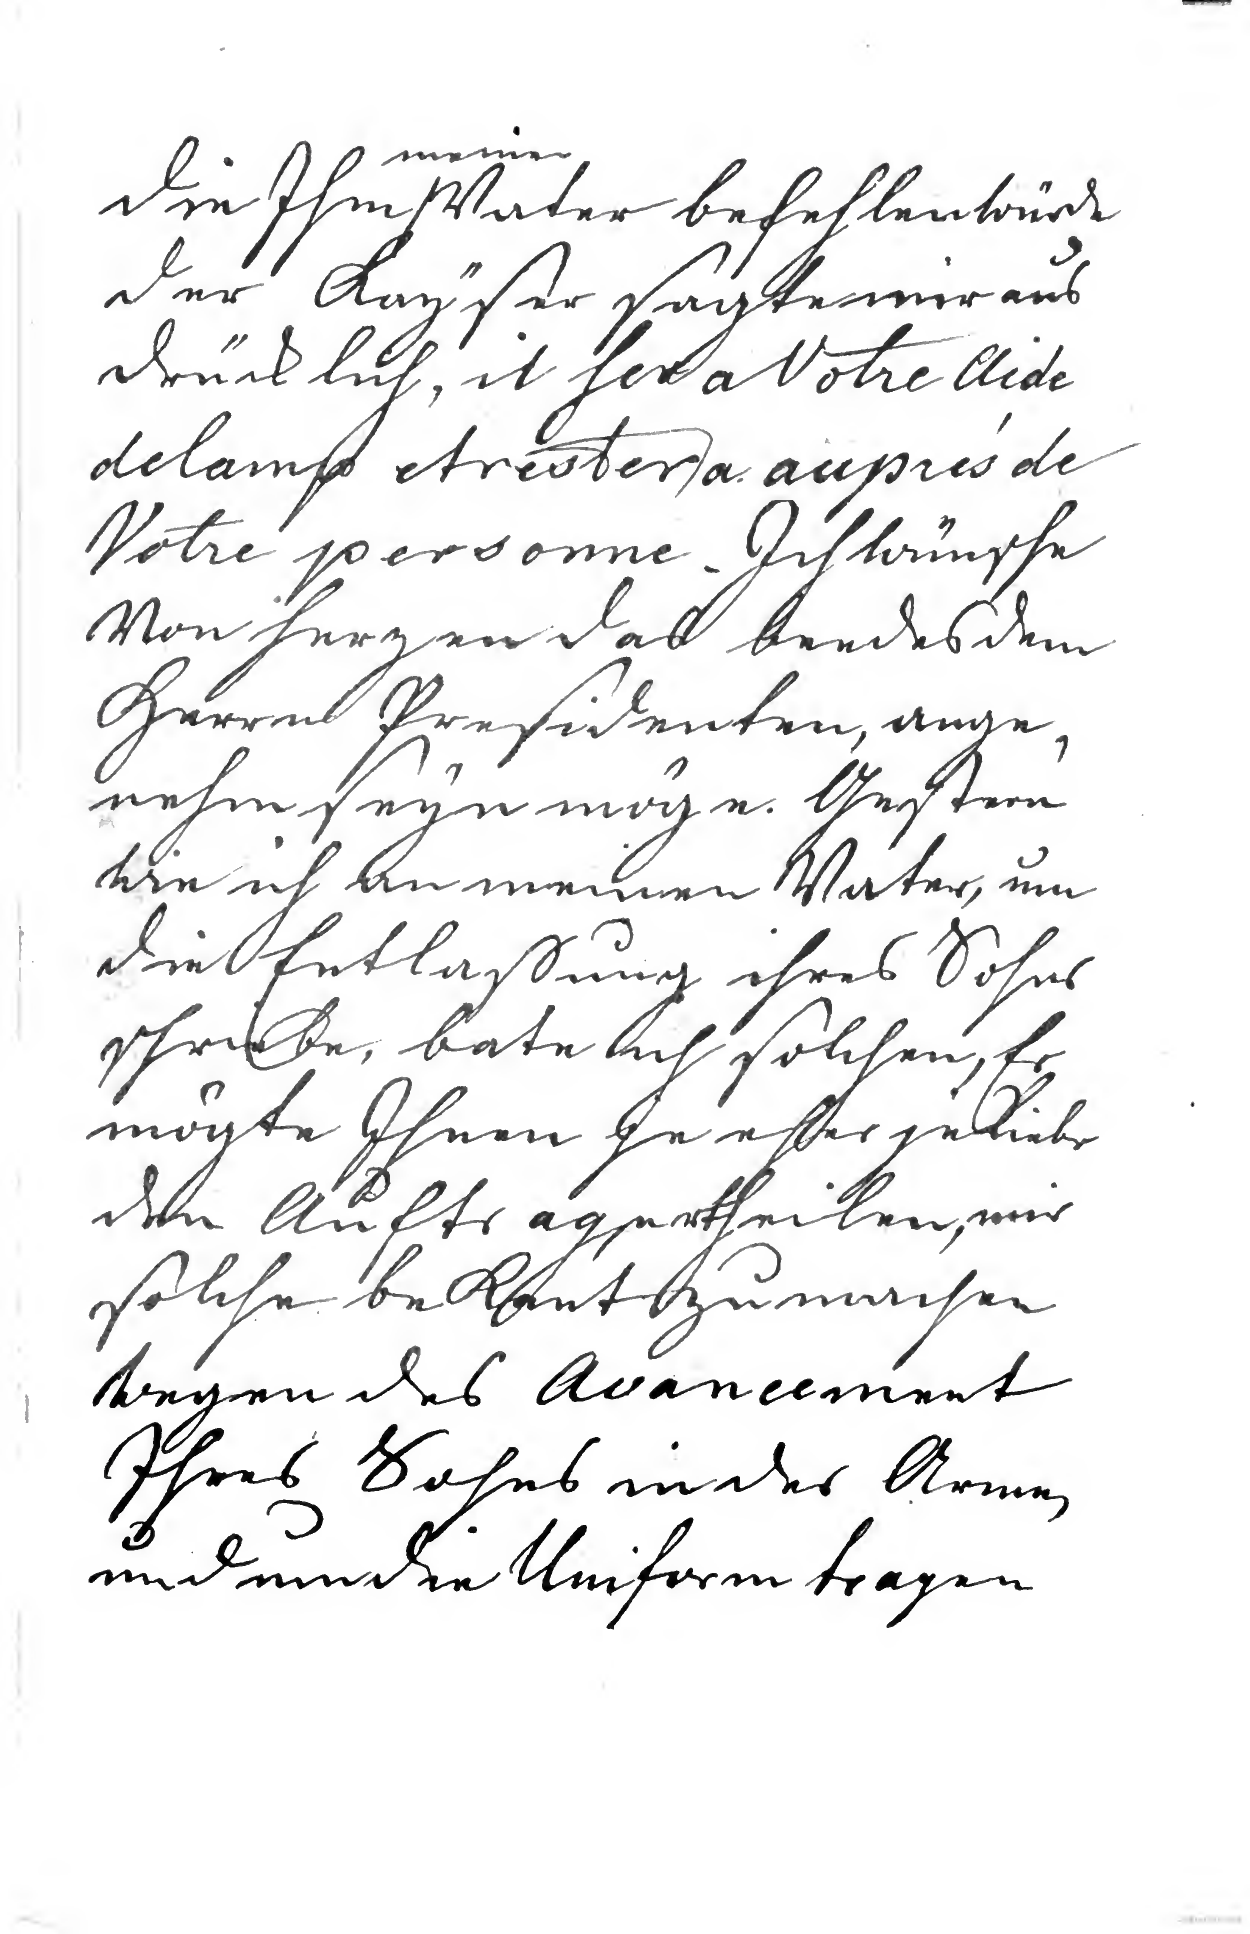 meine
die Ihm Vater befehlen würde
der Kaÿser sagte mir aus
drücklich, il sera Votre Aide
de Camp et restera auprés de
Votre personne - Ich wünsche
Von Herzen das beedes dem
Herrn Presidenten, ange,
nehm seÿn möge. Gestern
wie ich an meinen Vater, um
die Entlaßung ihres Sohns
schriebe, bate ich solchen, Er
mögte Ihnen je ehr je Lieber
den Auftrag ertheilen, mir
solche bekant zu machen
wegen des Avancement
Ihres Sohns in der Arme,
und um die Uniform tragen